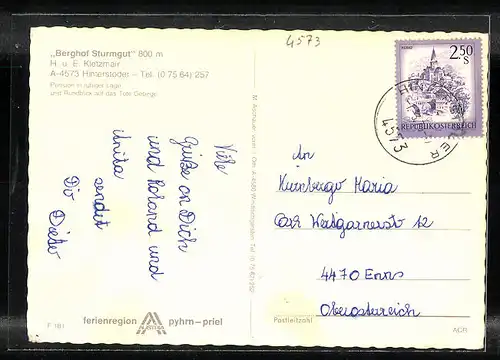 „Berghof Sturmgut" 800 m
H. u. E. Kletzmair
A-4573 Hinterstoder - Tel. (0 75 64) 257
Pension in ruhiger Lage
und Rundblick auf das Tote Gebirge
4573
MURAU
2.50
S
REPUBLIK ÖSTERREICH
4573
Viele
Grüße an Dich
und Roland und
Anita
sendet
Dir Dieter
An
Maria
4470 Enns
Oberösterreich
Postleitzahl
ferienregion
AUSTRIA
pyhrn-priel
F 181